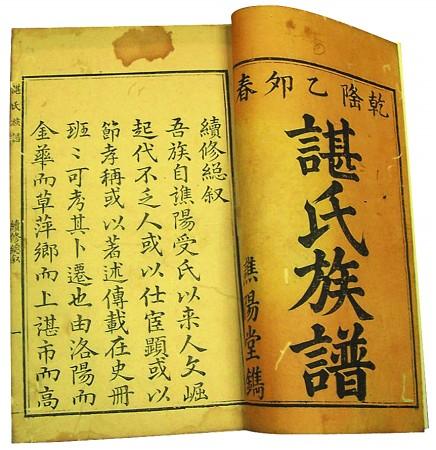 乾隆乙夘春
諶氏族譜
譙陽堂鐫
續修總叙
吾族自譙陽受氏以来人文崛
起代不乏人或以仕宦顯或以
節孝稱或以著述傳載在史冊
班〻可考其卜遷也由洛陽而
金華而草萍鄉而上諶市而高
諶氏族譜
續修總叙
一